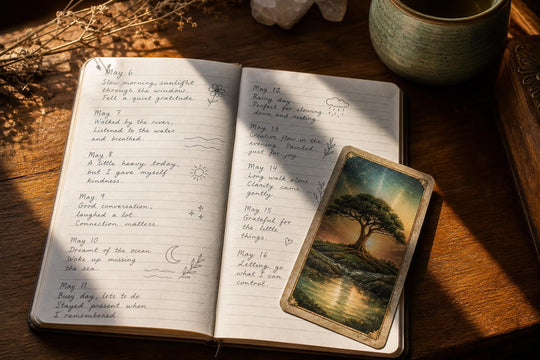 May 6
Slow morning, sunlight
through the window.
Felt a quiet gratitude.
May 7
Walked by the river,
Listened to the water
and breathed.
May 8
A little heavy today,
but I gave myself
kindness.
May 9
Good conversation,
laughed a lot.
Connection matters.
May 10
Dreamt of the ocean
Woke up missing
the sea.
May 11
Busy day, lots to do
Stayed present when
I remembered.
May 12
Rainy day
Perfect for slowing
down and resting.
May 13
Creative flow in the
evening. Painted
just for joy.
May 14
Long walk alone
Clarity came
gently.
May 15
Grateful for
the little
things.
May 16
Letting go
what I can
control.